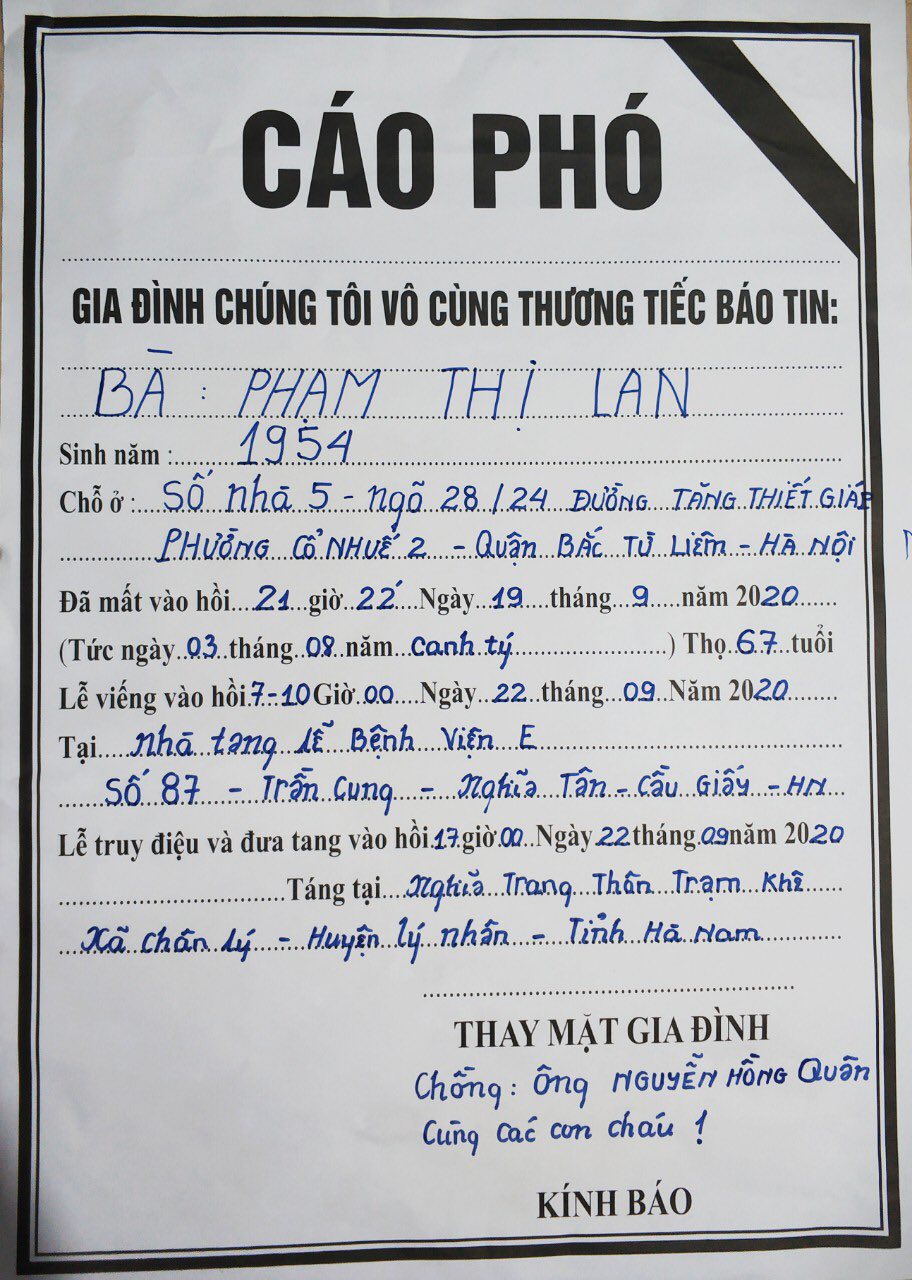 CÁO PHÓ
GIA ĐÌNH CHÚNG TÔI VÔ CÙNG THƯƠNG TIẾC BÁO TIN:
BÀ : PHẠM THỊ LAN
Sinh năm : 1954
Chỗ ở : Số nhà 5 - ngõ 28/24 ĐƯỜNG TĂNG THIẾT GIÁP
PHƯỜNG CỔ NHUẾ 2 - Quận BẮC TỪ LIÊM - HÀ NỘI
Đã mất vào hồi 21 giờ 22' Ngày 19 tháng 9 năm 2020
(Tức ngày 03 tháng 08 năm canh tý ) Thọ 67 tuổi
Lễ viếng vào hồi 7-10 Giờ 00 Ngày 22 tháng 09 Năm 2020
Tại nhà tang lễ Bệnh Viện E
Số 87 - Trần Cung - Nghĩa Tân - Cầu Giấy - HN
Lễ truy điệu và đưa tang vào hồi 17 giờ 00 Ngày 22 tháng 09 năm 2020
Táng tại Nghĩa Trang Thôn Trạm Khê
Xã chân Lý - Huyện lý nhân - Tỉnh Hà Nam
THAY MẶT GIA ĐÌNH
Chồng : Ông NGUYỄN HỒNG Quân
Cùng các con cháu !
KÍNH BÁO